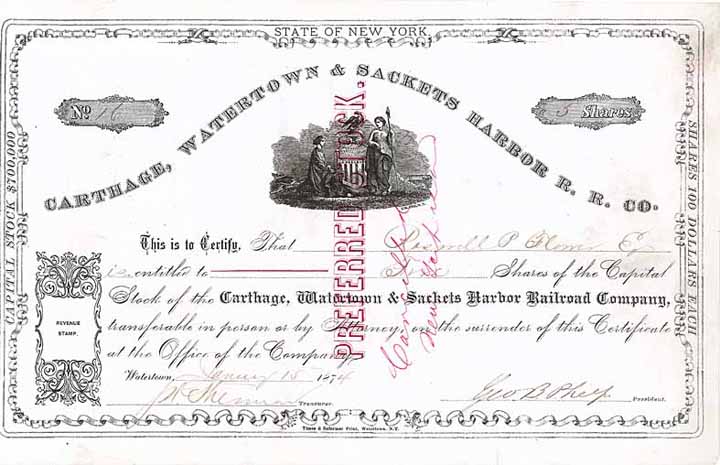 STATE OF NEW YORK.
Nº 16
5 Shares
CARTHAGE, WATERTOWN & SACKETS HARBOR R. R. CO.
CAPITAL STOCK $700,000
SHARES 100 DOLLARS EACH
PREFERRED STOCK.
This is to Certify, That Roswell P. Flower Esq
is entitled to Five Shares of the Capital
Stock of the Carthage, Watertown & Sackets Harbor Railroad Company,
transferable in person or by Attorney, on the surrender of this Certificate
at the Office of the Company
Watertown, January 15 1874
Treasurer.
Geo B Phelps President.
REVENUE
STAMP.
Cancelled
Times & Reformer Print, Watertown, N.Y.